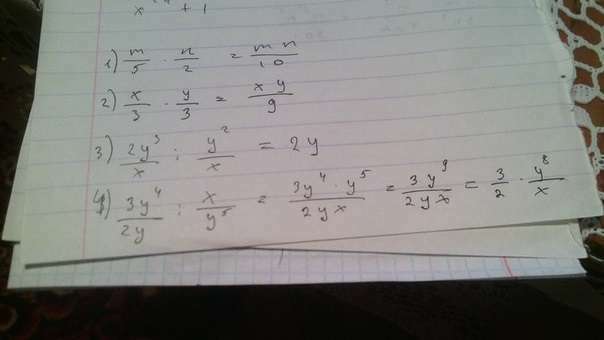 x + 1
1) m/5 · n/2 = mn/10
2) x/3 · y/3 = xy/9
3) 2y³/x : y²/x = 2y
4) 3y⁴/2y : x/y⁵ = 3y⁴·y⁵/2yx = 3y⁹/2yx = 3/2 · y⁸/x